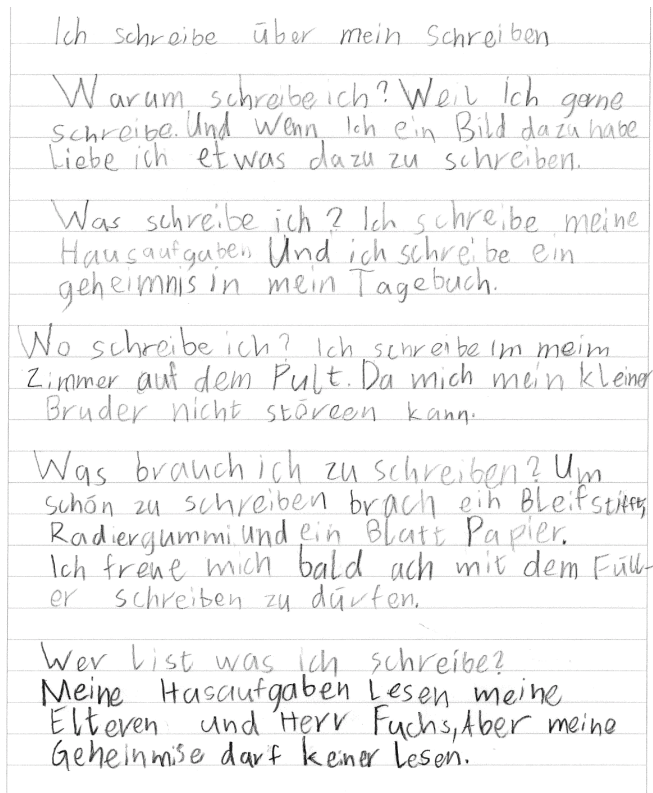 Ich schreibe über mein Schreiben
Warum schreibe ich? Weil Ich gerne
schreibe. Und wenn Ich ein Bild dazu habe
Liebe ich etwas dazu zu schreiben.
Was schreibe ich? Ich schreibe meine
Hausaufgaben Und ich schreibe ein
geheimnis in mein Tagebuch.
Wo schreibe ich? Ich schreibe Im meim
Zimmer auf dem Pult. Da mich mein kleiner
Bruder nicht störeen kann.
Was brauch ich zu schreiben? Um
schön zu schreiben brach ein Bleifstifft,
Radiergummi und ein Blatt Papier.
Ich freue mich bald ach mit dem Füll-
er schreiben zu dürfen.
Wer List was ich schreibe?
Meine Hasaufgaben Lesen meine
Elteren und Herr Fuchs, Aber meine
Geheinmise darf keiner Lesen.